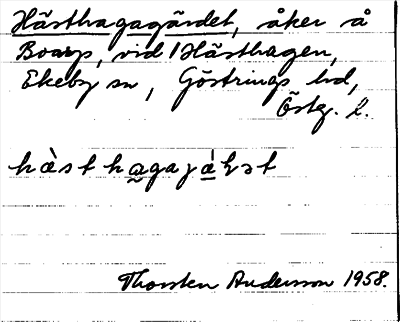 Hästhagagärdet, åker å
Boarp, vid Hästhagen,
Ekeby sn, Göstrings hd,
Östg. l.
hæ̀sthagajǽḷət
Thorsten Andersson 1958.